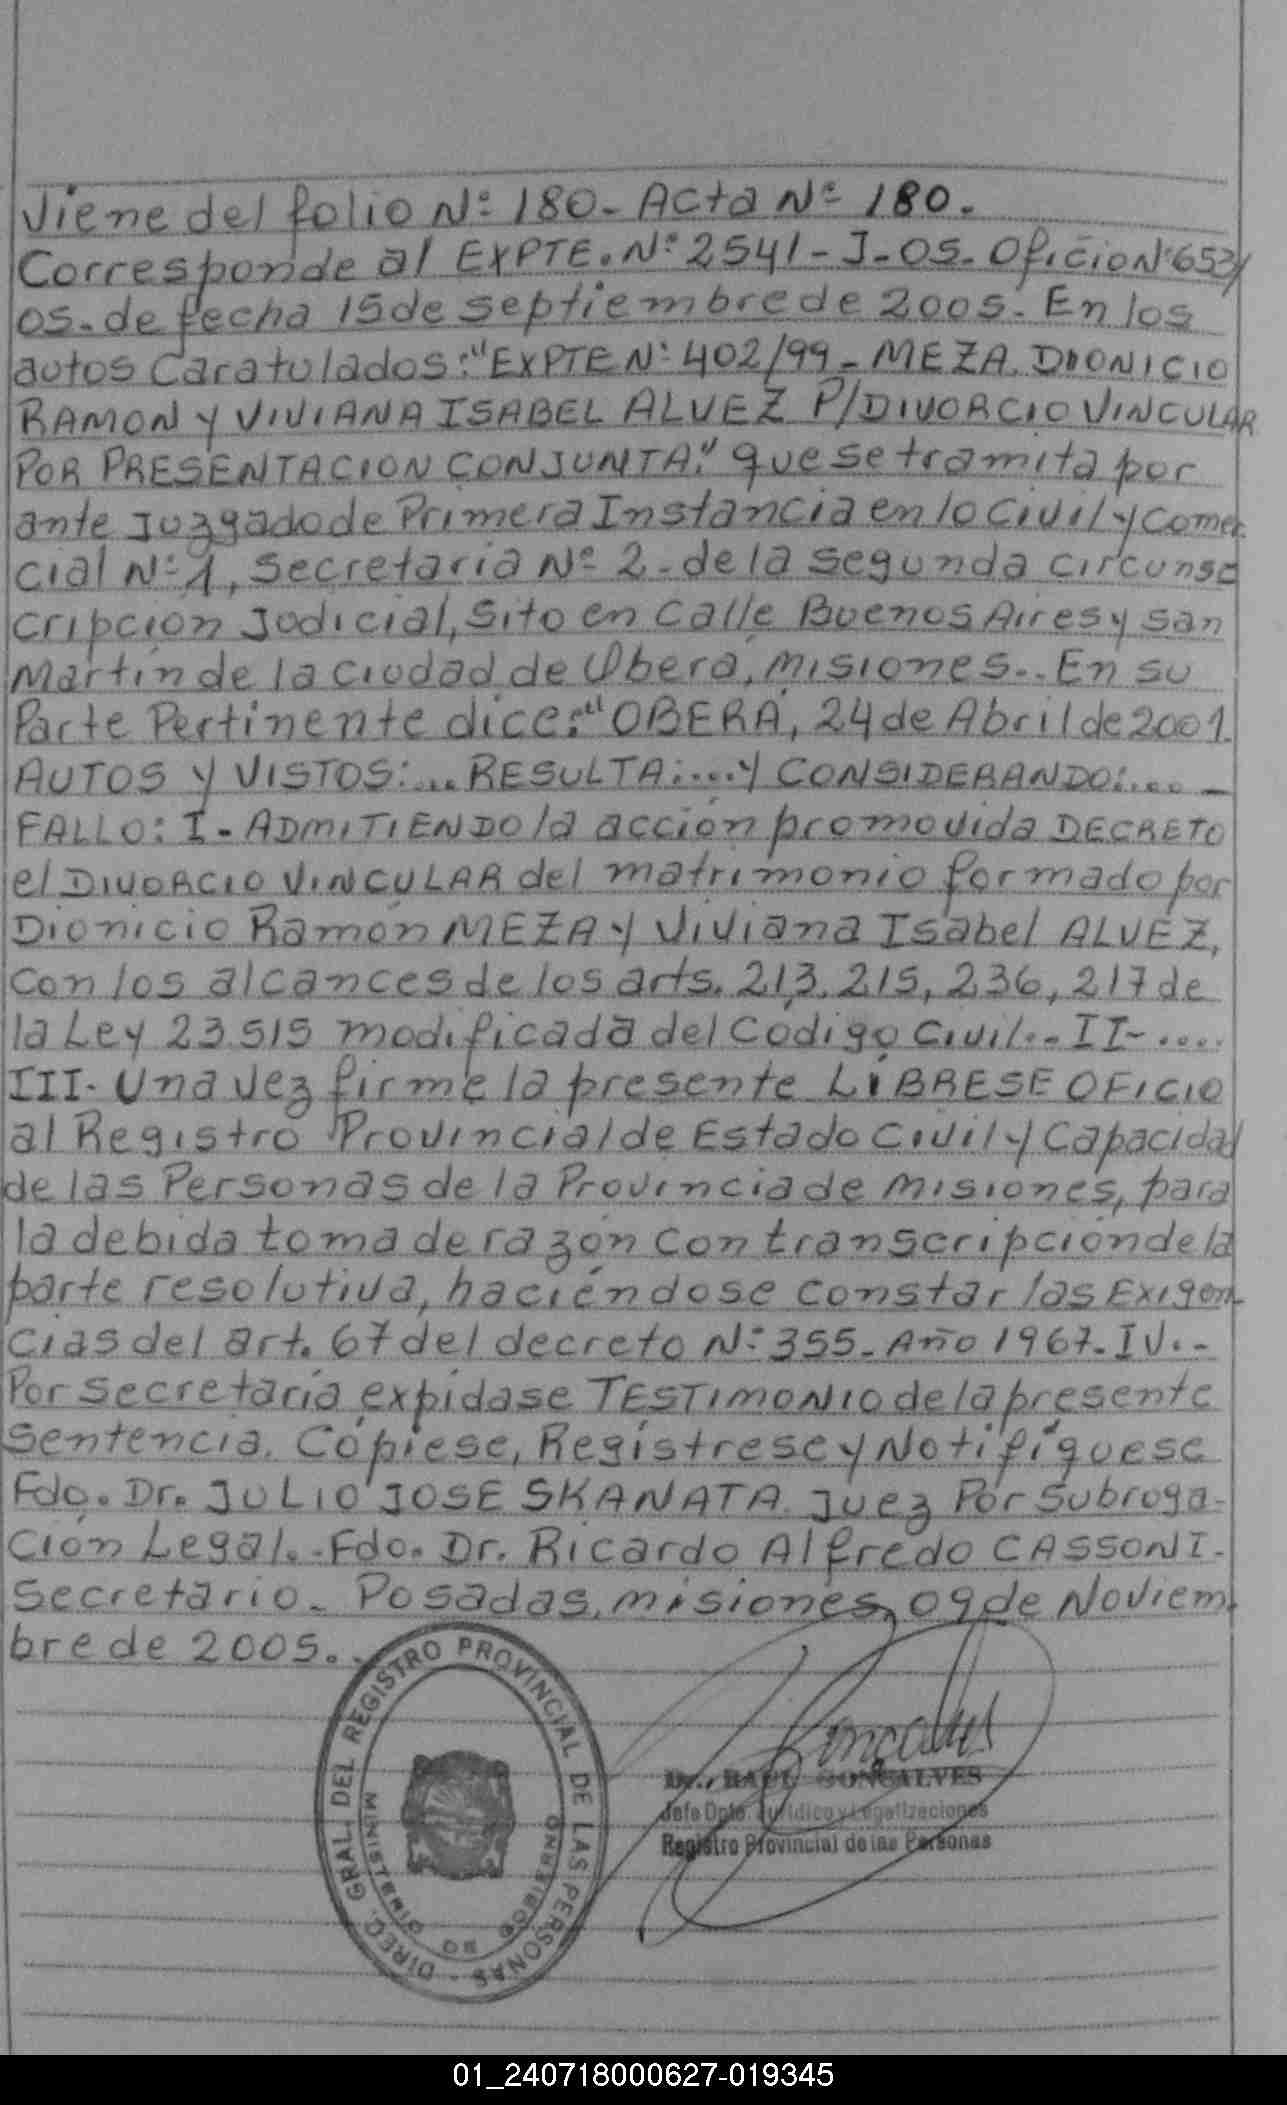 Viene del folio Nº 180- Acta Nº 180.
Corresponde al EXPTE. Nº 2541-J-05. Oficio Nº 653/
05. de fecha 15 de septiembre de 2005. En los
autos Caratulados: "EXPTE Nº 402/99 - MEZA, DIONICIO
RAMON y VIVIANA ISABEL ALVEZ P/DIVORCIO VINCULAR
POR PRESENTACION CONJUNTA." que se tramita por
ante Juzgado de Primera Instancia en lo Civil y Comer-
cial Nº 1, Secretaria Nº 2. de la segunda circuns-
cripción Judicial, sito en Calle Buenos Aires y San
Martín de la Ciudad de Oberá, Misiones.. En su
Parte Pertinente dice: "OBERA, 24 de Abril de 2001.
AUTOS Y VISTOS:... RESULTA:.... Y CONSIDERANDO:.... -
FALLO: I- ADMITIENDO la acción promovida DECRETO
el DIVORCIO VINCULAR del matrimonio formado por
Dionicio Ramón MEZA y Viviana Isabel ALVEZ,
con los alcances de los arts. 213, 215, 236, 217 de
la Ley 23.515 modificada del Código Civil..- II- ....
III- Una vez firme la presente LIBRESE OFICIO
al Registro Provincial de Estado Civil y Capacidad
de las Personas de la Provincia de Misiones, para
la debida toma de razón con transcripción de la
parte resolutiva, haciéndose constar las Exigen-
cias del art. 67 del decreto Nº 355- Año 1967- IV.-
Por Secretaría expídase TESTIMONIO de la presente
Sentencia. Cópiese, Regístrese y Notifíquese
Fdo. Dr. JULIO JOSE SKANATA Juez Por Subroga-
ción Legal.-Fdo. Dr. Ricardo Alfredo CASSONI-
Secretario- Posadas, Misiones, 09 de Noviem-
bre de 2005..
DIREC. GRAL. DEL REGISTRO PROVINCIAL DE LAS PERSONAS -
MINISTERIO DE GOBIERNO
Gonçalves
Dr. RAUL GONÇALVES
Jefe Dpto. Jurídico y Legalizaciones
Registro Provincial de las Personas
01_240718000627-019345